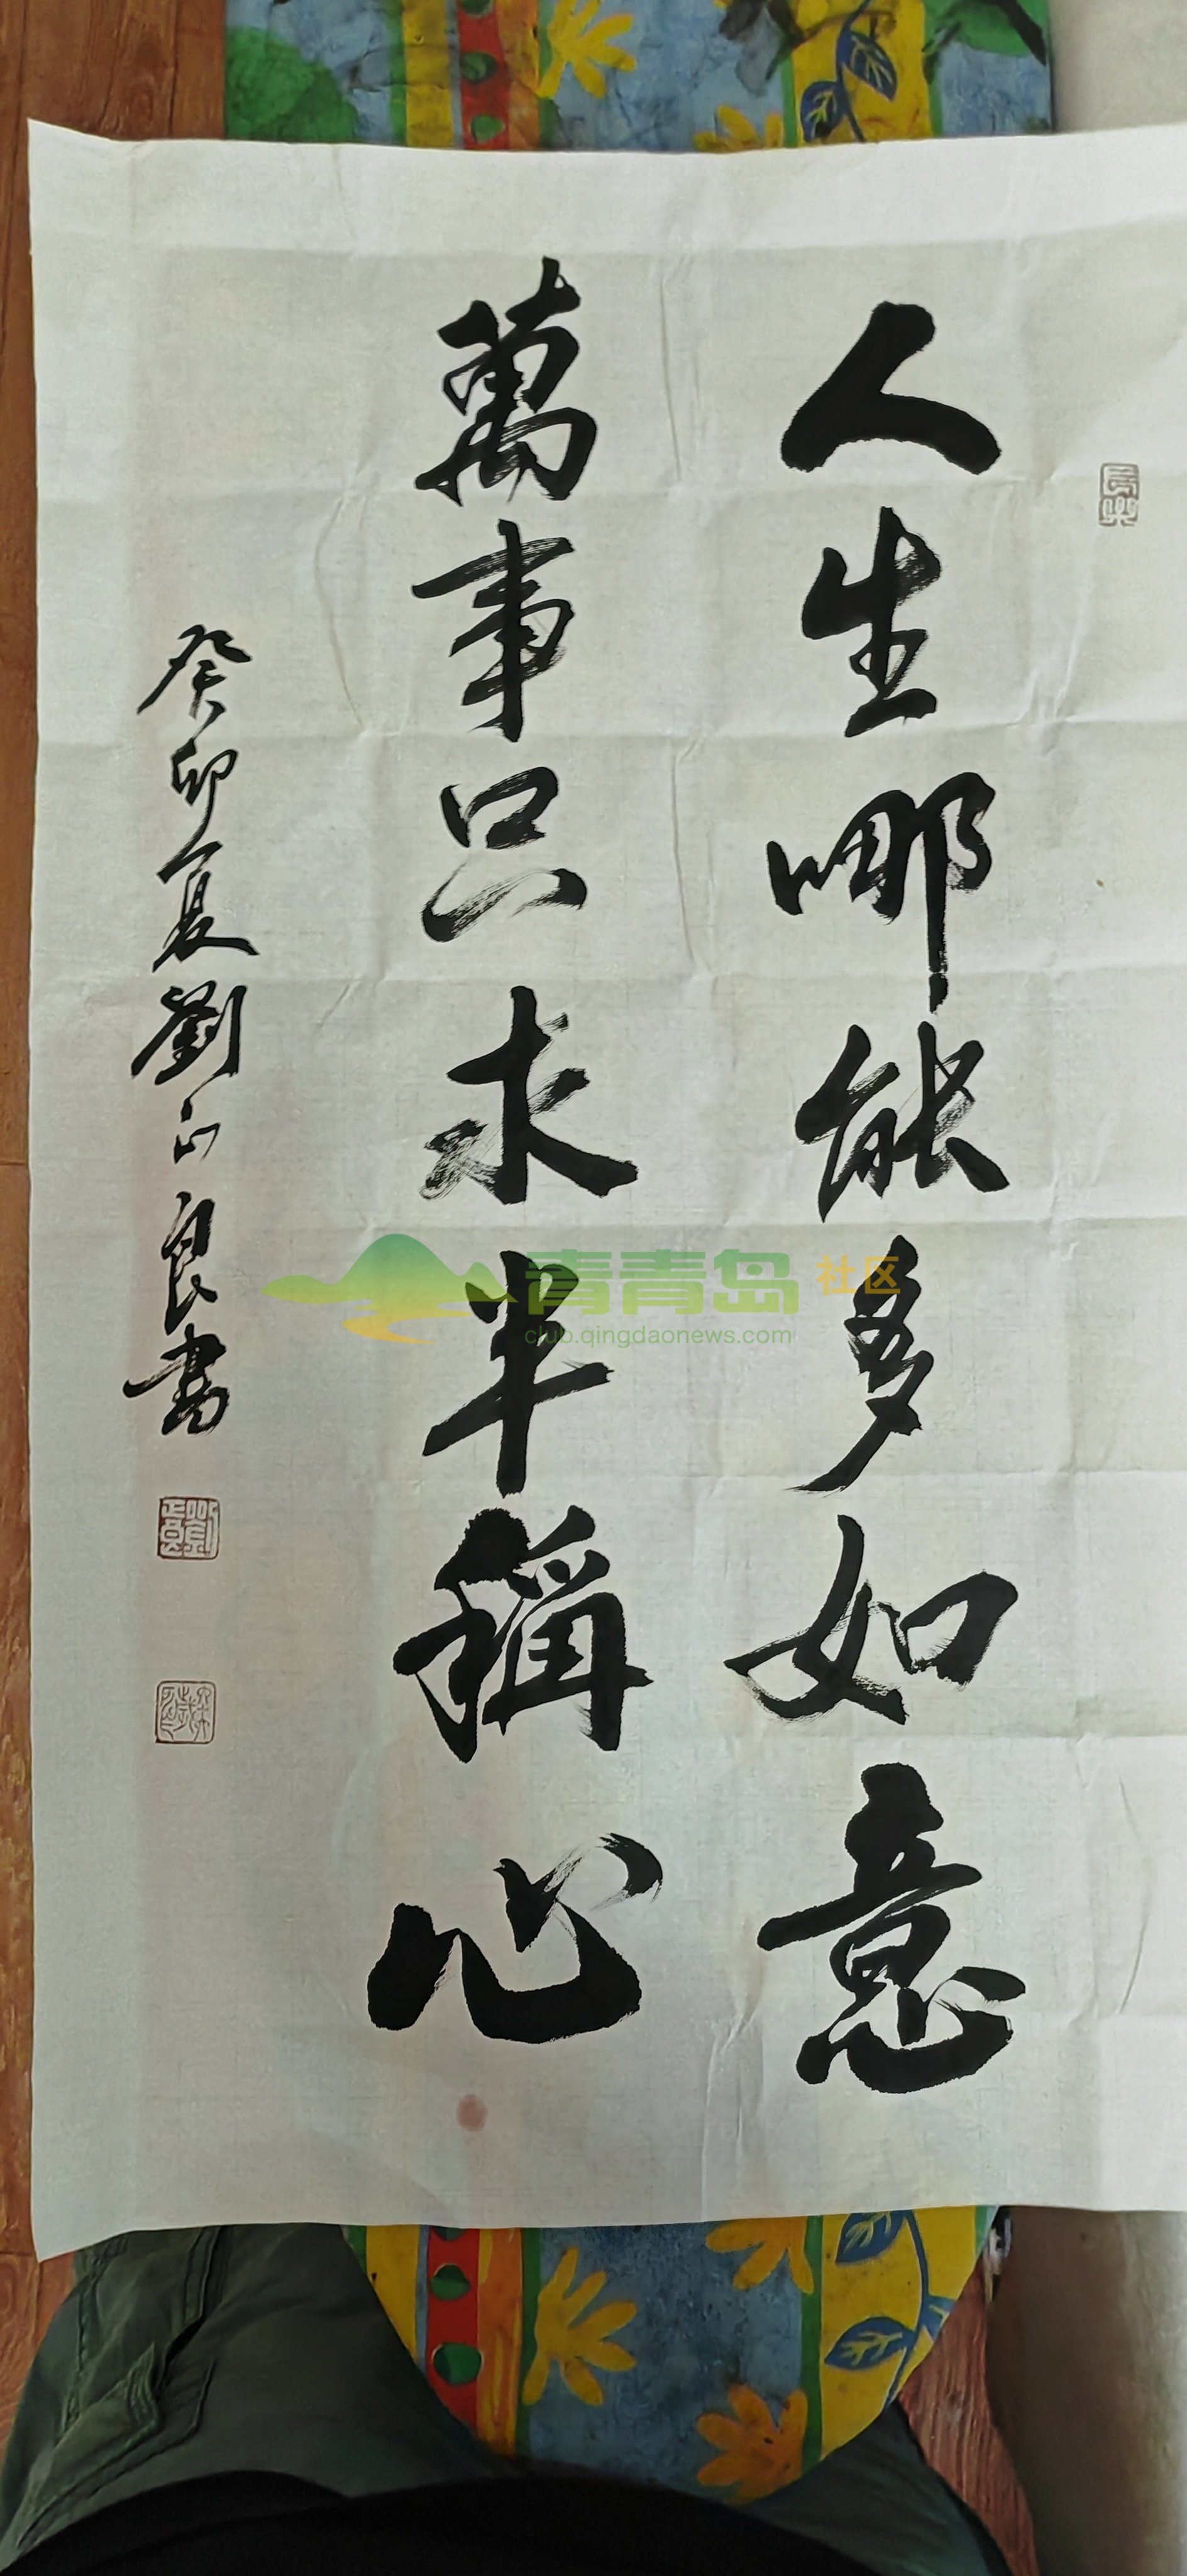 人生哪能多如意
萬事只求半稱心
癸卯夏劉正良書
青青岛社区
club.qingdaonews.com